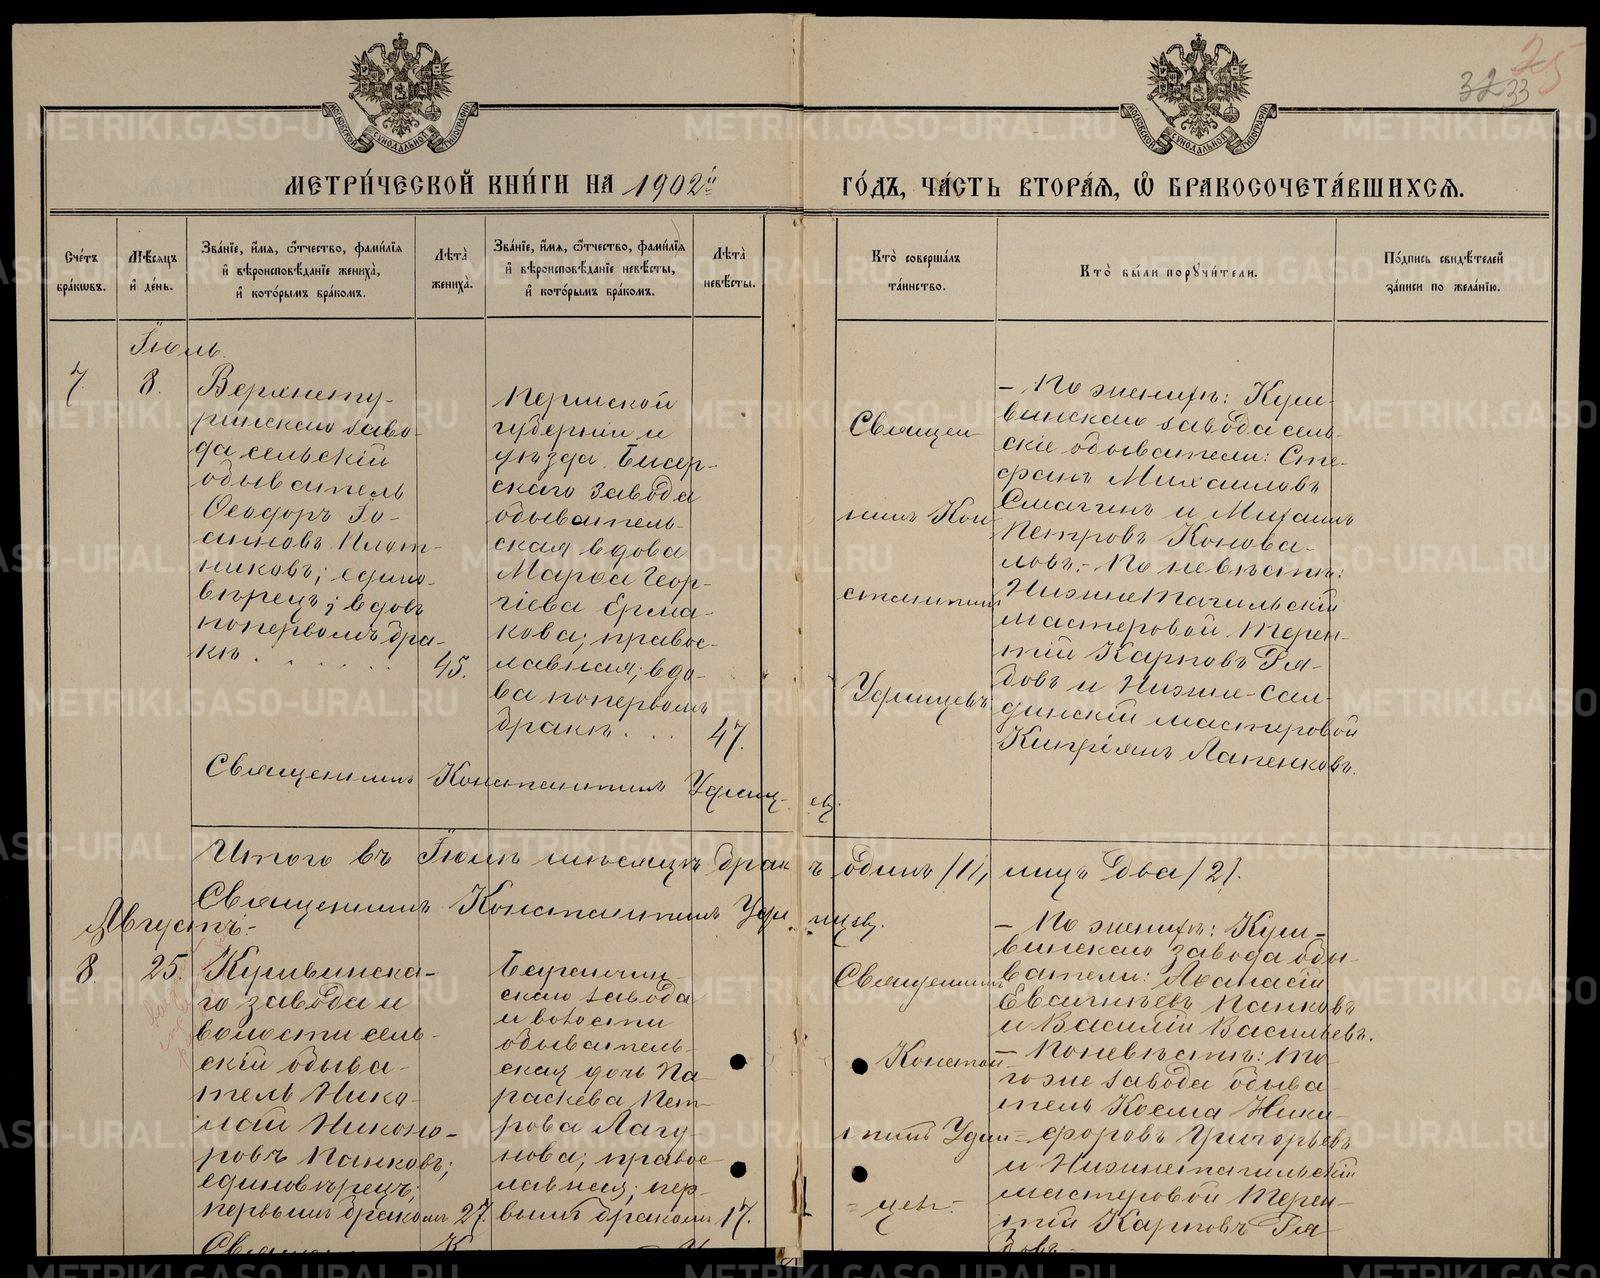 25
32 33
МОСКОВСКОЙ СѴНОДАЛЬНОЙ ТИПОГРАФІИ
МОСКОВСКОЙ СѴНОДАЛЬНОЙ ТИПОГРАФІИ
МЕТРИ́ЧЕСКОЙ КНИ́ГИ НА 1902й
ГО́ДЪ, ЧА́СТЬ ВТОРА́Ѧ, Ѽ БРАКОСОЧЕТА́ВШИХСѦ.
Сче́тъ бра́кѡвъ.
Мѣ́сѧцъ и҆ де́нь.
Зва́нїе, и҆́мѧ, ѻ҆́тчество, фами́лїѧ
и҆ вѣроисповѣ́данїе жениха̀,
и҆ кото́рымъ бра́комъ.
Лѣ́та̀ жениха̀.
Зва́нїе, и҆́мѧ, ѻ҆́тчество, фами́лїѧ
и҆ вѣроисповѣ́данїе невѣ́сты,
и҆ кото́рымъ бра́комъ.
Лѣ́та̀ невѣ́сты.
Кто̀ соверша́лъ та́инство.
Кто̀ бы́ли порꙋчи́тели.
По́дпись свидѣ́телей за́писи по жела́нїю.
Іюль.
7
8.
Верхнету-
ринскаго заво-
да сельскій
обыватель
Ѳеодоръ Іо-
анновъ Плот-
никовъ; едино-
вѣрецъ; вдовъ
по первомъ бра-
кѣ . . . . . .
45.
Пермской
губерніи и
уѣзда Бисер-
скаго завода
обыватель-
ская вдова
Марѳа Геор-
гіева Ерма-
кова; правос-
лавная; вдо-
ва по первомъ
бракѣ . . .
47.
Священ-
никъ Кон-
стантинъ
Удинцевъ
- По женихѣ: Куш-
винскаго завода сель-
скіе обыватели: Сте-
фанъ Михаиловъ
Смагинъ и Михаилъ
Петровъ Конова-
ловъ. - По невѣстѣ:
Нижнетагильскій
мастеровой Терен-
тій Карповъ Ря-
бовъ и Нижне-Сал-
динскій мастеровой
Кипріянъ Лапенковъ.
Священникъ Константинъ Удинцевъ.
Итого въ Іюлѣ мѣсяцѣ бракъ одинъ /1/, лицъ два /2/.
Священникъ Константинъ Удинцевъ.
Августъ.-
8.
25.
Кушвинска-
го завода и
волости сель-
скій обыва-
тель Нико-
лай Никано-
ровъ Панковъ;
единовѣрецъ;
первымъ бракомъ
27.
Баранчин-
скаго завода
и волости
обыватель-
ская дочь Па-
раскева Пет-
рова Лагу-
нова; правос-
лавная; пер-
вымъ бракомъ
17.
Священникъ
Констан-
тинъ Удин=
= цевъ.-
- По женихѣ: Куш-
винскаго завода обы-
ватели: Аѳанасій
Евгеніевъ Панковъ
и Василій Васильевъ.
- По невѣстѣ: то-
гоже завода обыва-
тель Косма Ники-
форовъ Григорьевъ
и Нижнетагильскій
мастеровой Терен-
тій Карповъ Ря-
бовъ.-
METRIKI.GASO-URAL.RU